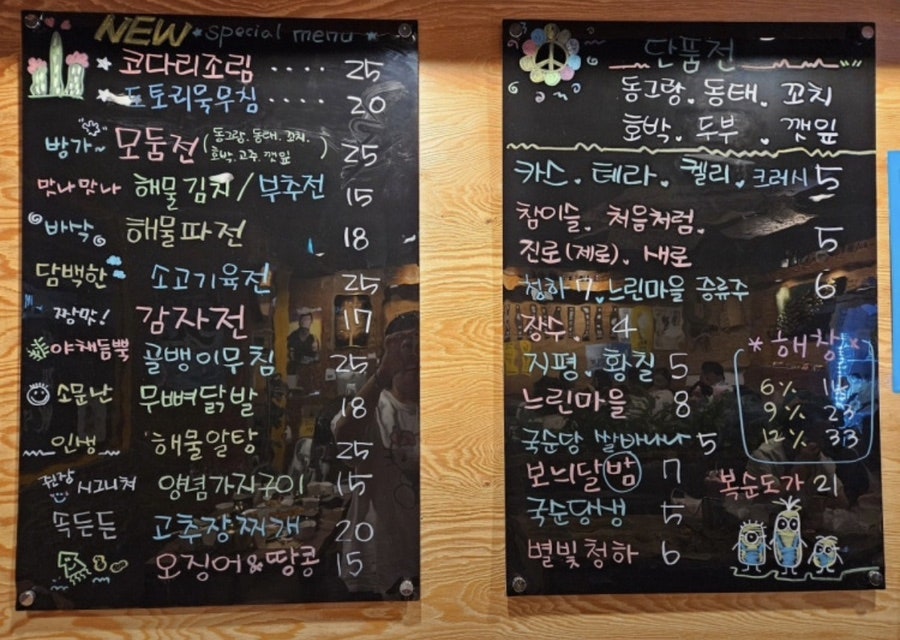 NEW special menu
코다리조림 .... 25
도토리묵무침 .... 20
방가~ 모둠전 (동그랑.동태.꼬치. 호박.고추.깻잎) 25
맛나맛나 해물김치/부추전 15
바삭 해물파전 18
담백한 소고기육전 25
짱맛! 감자전 17
야채듬뿍 골뱅이무침 25
소문난 무뼈닭발 18
인생 해물알탕 25
시그니쳐 양념가지구이 15
속든든 고추장찌개 20
오징어&땅콩 15
단품전
동그랑. 동태. 꼬치
호박. 두부. 깻잎
카스. 테라. 켈리. 크러시 5
참이슬. 처음처럼.
진로(제로). 새로 5
청하 7. 느린마을 증류주 6
장수. 4
지평. 황칠 5
느린마을 8
국순당 쌀바나나 5
보늬달밤 7
국순당생 5
별빛청하 6
*해창*
6%
9% 23
12% 33
복순도가 21